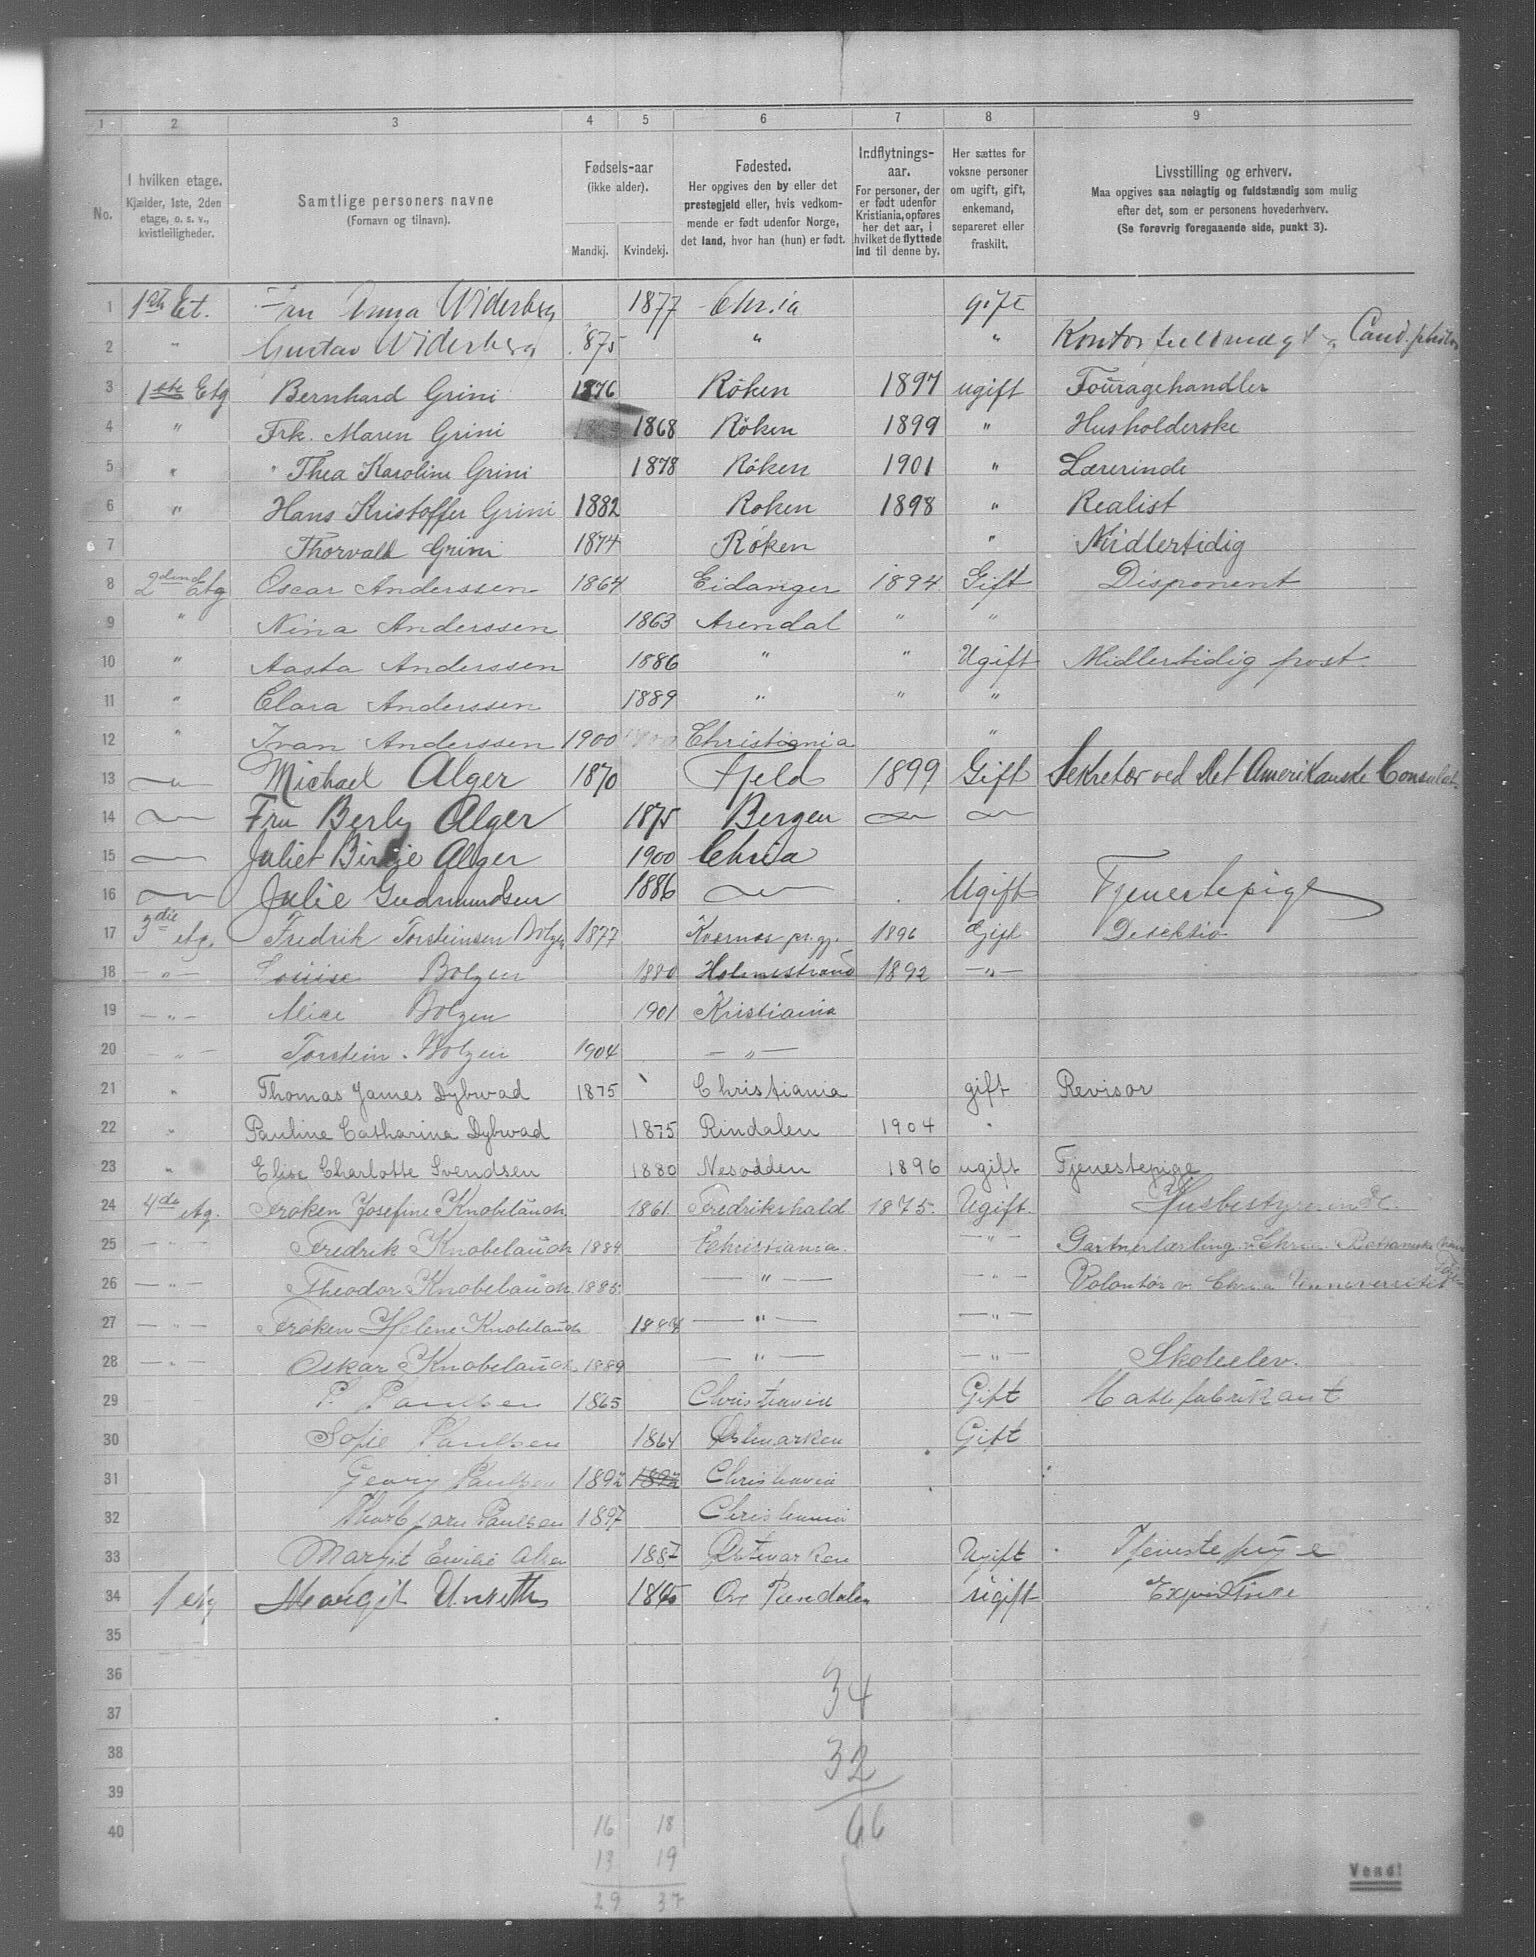 1 2 3 4 5 6 7 8 9
No.
I hvilken etage.
Kjælder, 1ste, 2den
etage, o. s. v.,
kvistleiligheder.
Samtlige personers navne
(Fornavn og tilnavn).
Fødsels-aar
(ikke alder).
Mandkj. Kvindekj.
Fødested.
Her opgives den by eller det
prestegjeld eller, hvis vedkom-
mende er født udenfor Norge,
det land, hvor han (hun) er født.
Indflytnings-
aar.
For personer, der
er født udenfor
Kristiania, opføres
her det aar, i
hvilket de flyttede
ind til denne by.
Her sættes for
voksne personer
om ugift, gift,
enkemand,
separeret eller
fraskilt.
Livsstilling og erhverv.
Maa opgives saa nøiagtig og fuldstændig som mulig
efter det, som er personens hovederhverv.
(Se forøvrig foregaaende side, punkt 3).
1 1ste Et. Fru Anna Widerberg 1877 Chr.ia gift
2 " Gustav Widerberg 1875 " " Kontorfuldmægt. Cand. philos
3 1ste Etg Bernhard Grini 1876 Røken 1897 ugift Fouragehandler
4 " Frk. Maren Grini 1868 Røken 1899 " Husholderske
5 " " Thea Karoline Grini 1878 Røken 1901 " Lærerinde
6 " Hans Kristoffer Grini 1882 Røken 1898 " Realist
7 Thorvald Grini 1874 Røken " Midlertidig
8 2den Etg Oscar Anderssen 1864 Eidanger 1894 Gift Disponent
9 " Nina Anderssen 1863 Arendal " "
10 " Aasta Anderssen 1886 " " Ugift Midlertidig post.
11 " Clara Anderssen 1889 " " "
12 " Ivan Anderssen 1900 Christiania "
13 — Michael Alger 1870 Fjeld 1899 Gift Sekretær ved Det Amerikanske Consulat.
14 — Fru Berly Alger 1875 Bergen — —
15 — Juliet Birgie Alger 1900 Chria
16 — Julie Gudmundsen 1886 — Ugift Tjenestepige
17 3die etg. Fredrik Torsteinsen Bolzen 1877 1896 Gift
18 — " — Louise Bolzen 1880 Holmestrand 1892 — " —
19 — " — Alice Bolzen 1901 Kristiania
20 — " — Torstein Bolzen 1904 — " —
21 " Thomas James Dybwad 1875 Christiania gift Revisor
22 " Pauline Catharina Dybwad 1875 Rindalen 1904 "
23 " Elise Charlotte Svendsen 1880 Nesodden 1896 ugift Tjenestepige
24 4de etg. Frøken Josefine Knobelauch 1861 Fredrikshald 1875. Ugift. Husbestyrerinde.
25 — " — Fredrik Knobelauch 1884 Christiania. — " — Gartnerlærling v. Chria Botaniske
26 — " — Theodor Knobelauch 1885. — " — — " — Volontør v. Chria Unneversitet
27 — " — Frøken Helene Knobelauch 1884 — " — — " —
28 — " — Oskar Knobelauch 1889 — " — — " — Skoleelev.
29 P. Paulsen 1865 Christiania Gift Hattefabrikant
30 Sofie Paulsen 1864 Østmarken Gift
31 Georg Paulsen 1892 1892 Christiania
32 Thorbjørn Paulsen 1897 Christiania
33 Margit Emilie 1887 Ugift Tjenestepige
34 1 etg Margit Unseth Ugift
35
36
37
38
39
40
34
32
66
16 18
13 19
29 37
Vend!